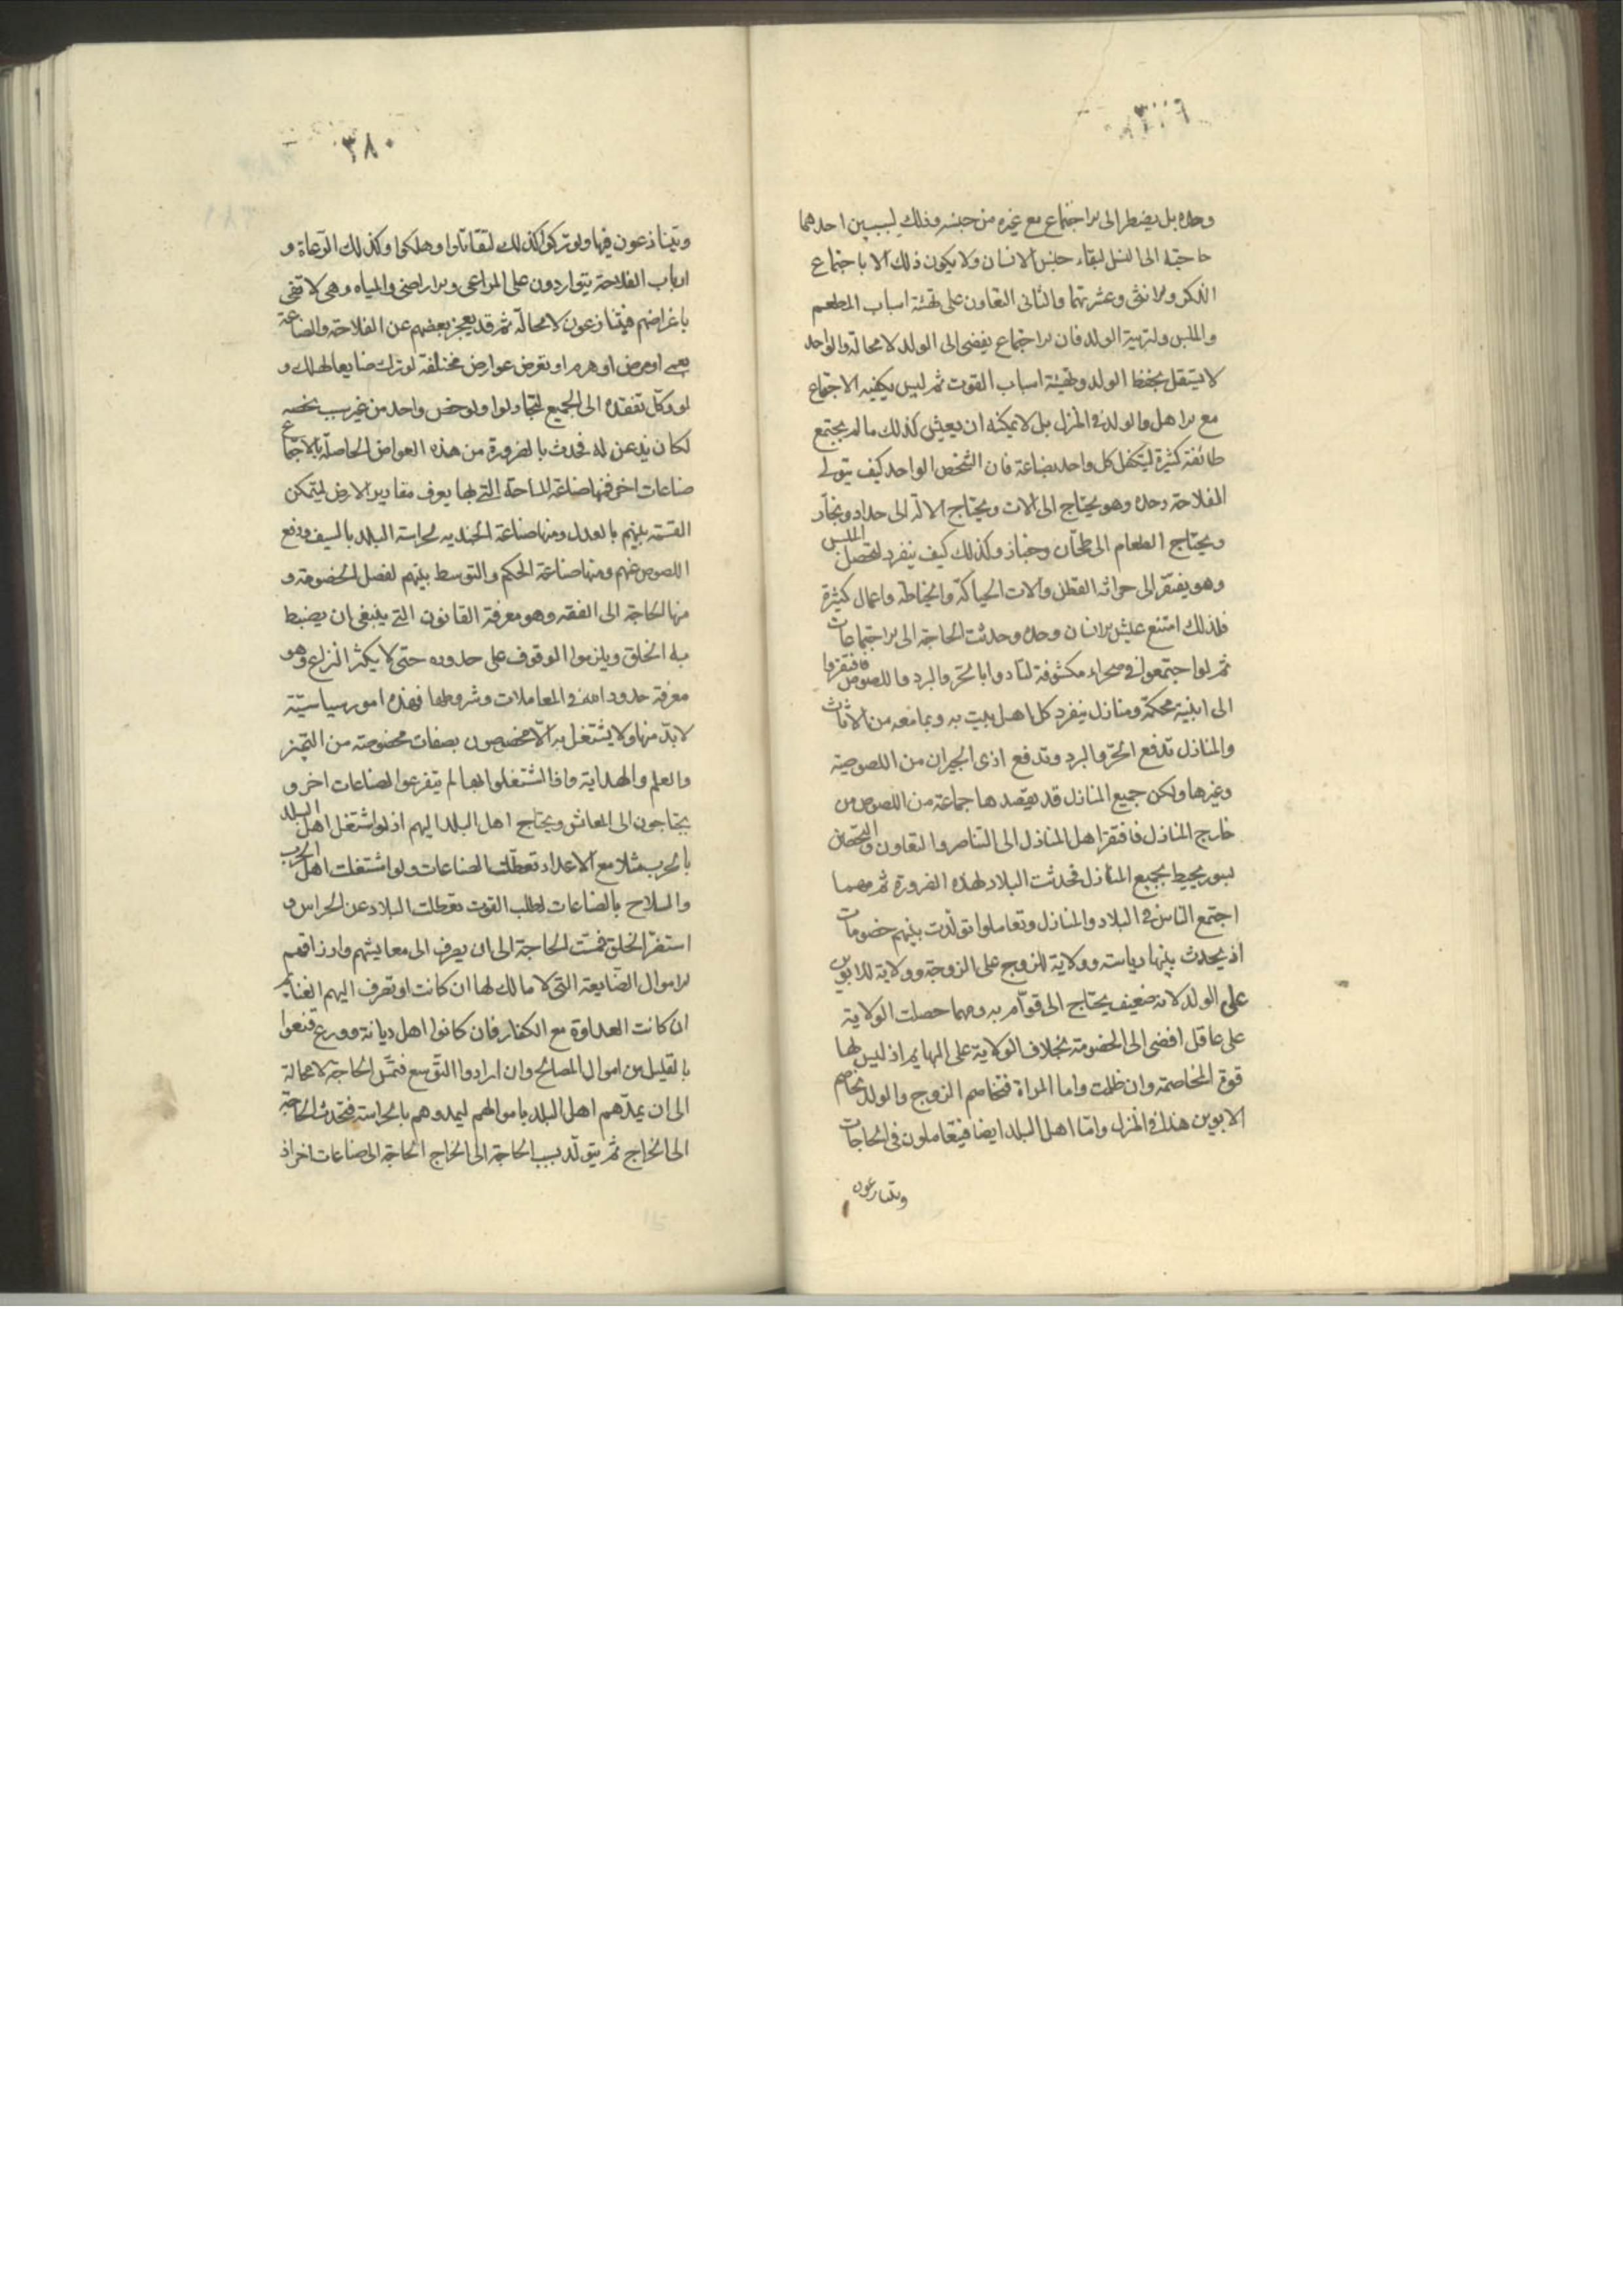 وحده بل يضطر الى الاجتماع مع غيره من جنسه وذلك لسببين احدهما
حاجته الى النسل لبقاء جنس الانسان ولا يكون ذلك الا باجتماع
الذكر والانثى وعشرتهما والثانى التعاون على تهئة اسباب المطعم
والملبس ولتربية الولد فان الاجتماع يفضى الى الولد لا محالة والواحد
لا يستقل بحفظ الولد وتهئية اسباب القوت ثم ليس يكفيه الاجتماع
مع الاهل والولد فى المنزل بل لا يمكنه ان يعيش كذلك ما لم يجتمع
طائفة كثيرة ليتكفل كل واحد بصناعة فان الشخص الواحد كيف يتولى
الفلاحة وحده وهو يحتاج الى الات ويحتاج الالة الى حداد ونجار
ويحتاج الطعام الى طحان وخباز وكذلك كيف ينفرد لتحصيل الملبس
وهو يفتقر الى حراثه القطن والات الحياكة والخياطه واعمال كثيرة
فلذلك امتنع عيش الانسان وحده وحدثت الحاجة الى الاجتماعات
ثم لو اجتمعوا فى صحراء مكشوفة لتاذوا بالحر والبرد واللصوص فافتقروا
الى ابنية محكمة ومنازل ينفرد كل اهل بيت به وبما معه من الاثاث
والمنازل تدفع الحر والبرد وتدفع اذى الجيران من اللصوصية
وغيرها ولكن جميع المنازل قد يقصدها جماعة من اللصوص من
خارج المنازل فافتقر اهل المنازل الى التناصر والتعاون والتحصن
بسور يحيط بجميع المنازل فحدثت البلاد لهذه الضرورة ثم مهما
اجتمع الناس فى البلاد والمنازل وتعاملوا تولدت بينهم خصومات
اذ يحدث بينها رياسته وولاية للزوج على الزوجة وولاية للابوين
على الولد لانه ضعيف يحتاج الى قوام به ومهما حصلت الولاية
على عاقل افضى الى الخصومة بخلاف الولاية على البهايم اذ ليس لها
قوة المخاصمة وان ظلمت واما المراة فتخاصم الزوج والولد يخاصم
الابوين هذا فى المنزل واما اهل البلد ايضا فيتعاملون فى الحاجات
ويتنازعون
٣٨٠
ويتنازعون فيها ولو تركوا كذلك لتقاتلوا وهلكوا وكذلك الرعاة و
ارباب الفلاحة يتواردون على المراعى والاراضى والمياه وهى لا تفى
باغراضهم فيتنازعون لا محالة ثم قد يعجز بعضهم عن الفلاحة والصناعة
بعمى او مرض او هرم او تعرض عوارض مختلفة لو ترك ضايعا لهلك و
لو وكل تفقده الى الجميع لتجادلوا ولو خص واحد من غير سبب يخصه
لكان يذعن له فحدث بالضرورة من هذه العوارض الحاصلة بالاجتماع
صناعات اخرى فمنها صناعة المساحة التى بها يعرف مقادير الارض ليتمكن
القسمة بينهم بالعدل ومنها صناعة الجنديه لحراسة البلد بالسيف ودفع
اللصوص عنهم ومنها صناعة الحكم والتوسط بينهم لفصل الخصومة و
منها الحاجة الى الفقه وهو معرفة القانون الذى ينبغى ان يضبط
به الخلق ويلزموا الوقوف على حدوده حتى لا يكثر النزاع وهو
معرفة حدود الله فى المعاملات وشروطها فهذه امور سياسية
لابد منها ولا يشتغل به الا مخصوصون بصفات مخصوصة من التميز
والعلم والهداية واذا اشتغلوا بها لم يتفرغوا لصناعات اخر و
يحتاجون الى المعاش ويحتاج اهل البلد اليهم اذ لو اشتغل اهل البلد
بالحرب مثلا مع الاعداء تعطلت الصناعات ولو اشتغلت اهل الحرب
والسلاح بالصناعات لطلب القوت تعطلت البلاد عن الحراس و
استضر الخلق فمست الحاجة الى ان يصرف الى معايشهم وارزاقهم
الاموال الضايعة التى لا مالك لها ان كانت او تصرف اليهم الغنايم
ان كانت العداوة مع الكفار فان كانوا اهل ديانة وورع قنعوا
بالقليل من اموال المصالح وان ارادوا التوسع فتمس الحاجة لا محالة
الى ان يمدهم اهل البلد باموالهم ليمدوهم بالحراسة فتحدث الحاجة
الى الخراج ثم يتولد بسبب الحاجة الى الخراج الحاجة الى صناعات اخر اذ